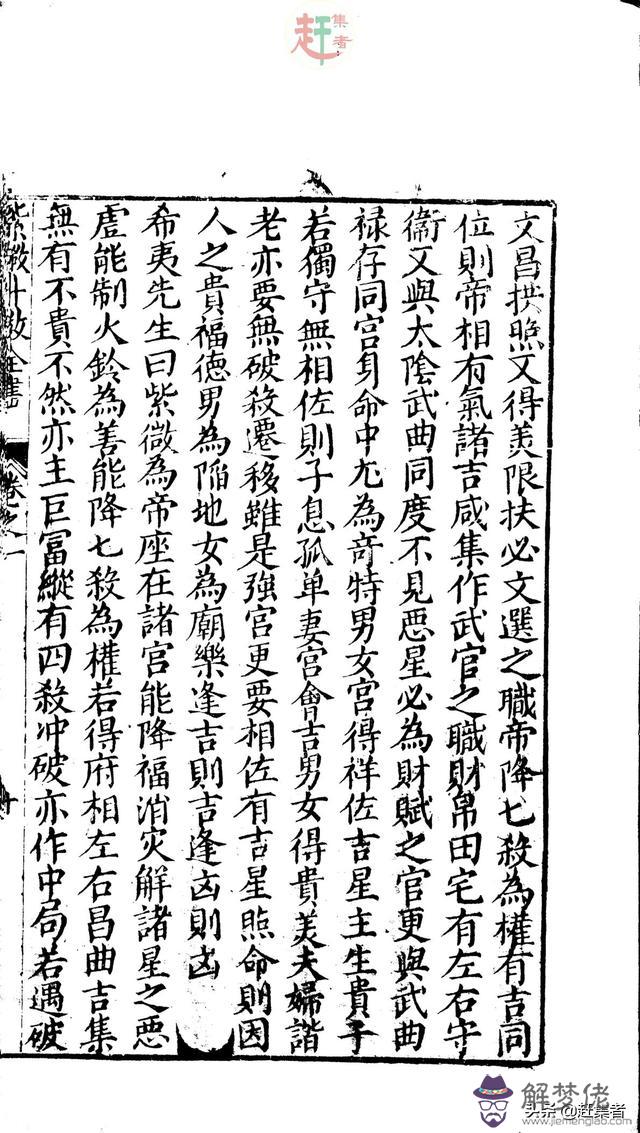 赶集者
文昌拱照又得美限扶必文選之職帝降七殺為權有吉同
位則帝相有氣諸吉咸集作武官之職財帛田宅有左右守
衛又與太陰武曲同度不見惡星必為財賦之官更與武曲
禄存同宮身命中尤為竒特男女宮得祥佐吉星主生貴子
若獨守無相佐則子息孤单妻宮會吉男女得貴美夫婦諧
老亦要無破殺遷移雖是強宮更要相佐有吉星照命則因
人之貴福德男為陷地女為廟樂逢吉則吉逢凶則凶
希夷先生曰紫微為帝座在諸宮能降福消灾解諸星之惡
虗能制火鈴為善能降七殺為權若得府相左右昌曲吉集
無有不貴不然亦主巨冨縱有四殺冲破亦作中局若遇破
卷之一
解梦佬
www.jiemenglao.com
头条 @赶集者